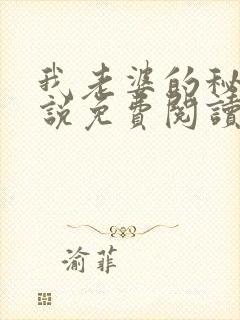 我老婆的秘
說免費閱讀
渝菲